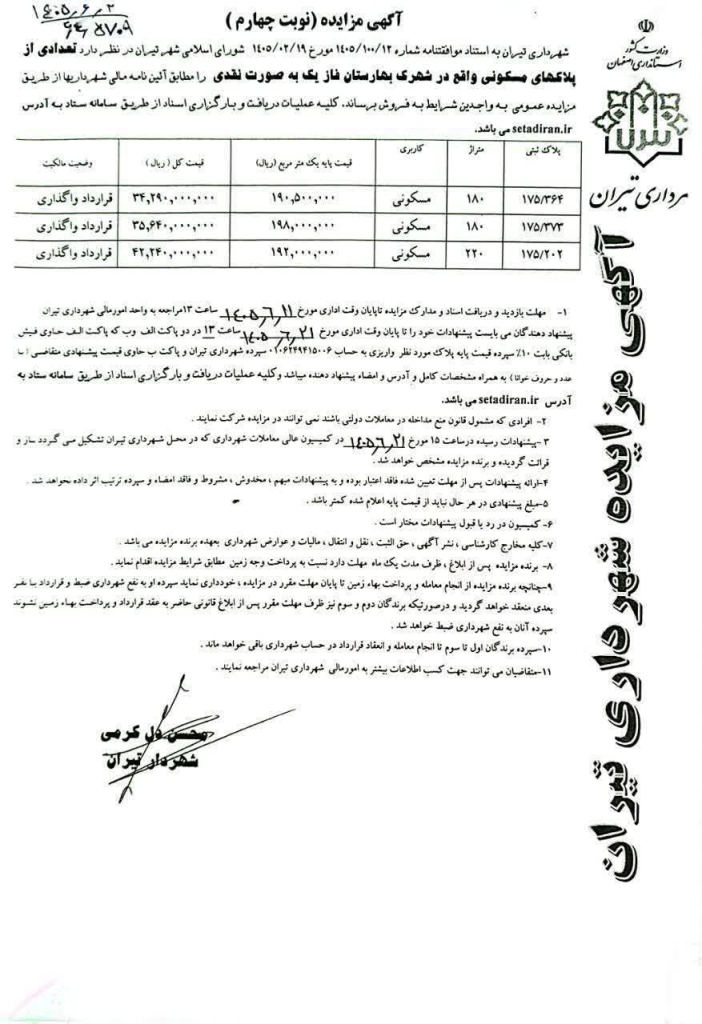 ۱۴۰۵,۶,۲
آگهی مزایده (نوبت چهارم )
وزارت کشور
استانداری اصفهان
مرداری تیران
شهرداری تیران به استناد موافقتنامه شماره ۱۴۰۵/۱۰۰/۱۲ مورخ ۱۴۰۵/۰۲/۱۹ شورای اسلامی شهر تیران در نظر دارد تعدادی از
پلاکهای مسکونی واقع در شهرک بهارستان فاز یک به صورت نقدی را مطابق آئین نامه مالی شهرداریها از طریق
مزایده عمومی به واجدین شرایط به فروش برساند. کلیه عملیات دریافت و بارگزاری اسناد از طریق سامانه ستاد به آدرس
setadiran.ir می باشد.
پلاک ثبتی متراژ کاربری قیمت پایه یک متر مربع (ریال) قیمت کل ( ریال ) وضعیت مالکیت
۱۷۵/۳۶۴ ۱۸۰ مسکونی ۱۹۰,۵۰۰,۰۰۰ ۳۴,۲۹۰,۰۰۰,۰۰۰ قرارداد واگذاری
۱۷۵/۳۷۳ ۱۸۰ مسکونی ۱۹۸,۰۰۰,۰۰۰ ۳۵,۶۴۰,۰۰۰,۰۰۰ قرارداد واگذاری
۱۷۵/۲۰۲ ۲۲۰ مسکونی ۱۹۲,۰۰۰,۰۰۰ ۴۲,۲۴۰,۰۰۰,۰۰۰ قرارداد واگذاری
۱- مهلت بازدید و دریافت اسناد و مدارک مزایده تاپایان وقت اداری مورخ ۱۴۰۵,۶,۱۱ ساعت ۱۳مراجعه به واحد امورمالی شهرداری تیران
پیشنهاد دهندگان می بایست پیشنهادات خود را تا پایان وقت اداری مورخ ۱۴۰۵,۶,۲۱ ساعت ۱۳ در دو پاکت الف وب که پاکت الف حاوی فیش
بانکی بابت ۱۰٪ سپرده قیمت پایه پلاک مورد نظر واریزی به حساب ۰۱۰۶۲۴۹۴۱۵۰۰۶ سپرده شهرداری تیران و پاکت ب حاوی قیمت پیشنهادی متقاضی (با
عدد و حروف خوانا ) به همراه مشخصات کامل و آدرس و امضاء پیشنهاد دهنده میباشد وکلیه عملیات دریافت و بارگزاری اسناد از طریق سامانه ستاد به
آدرس setadiran.ir می باشد.
۲- افرادی که مشمول قانون منع مداخله در معاملات دولتی باشند نمی توانند در مزایده شرکت نمایند .
۳-پیشنهادات رسیده درساعت ۱۵ مورخ ۱۴۰۵,۶,۲۱ در کمیسیون عالی معاملات شهرداری که در محل شهرداری تیران تشکیل می گردد ساز و
قرائت گردیده و برنده مزایده مشخص خواهد شد .
۴-ارائه پیشنهادات پس از مهلت تعیین شده فاقد اعتبار بوده و به پیشنهادات مبهم ، مخدوش ، مشروط و فاقد امضاء و سپرده ترتیب اثر داده نخواهد شد .
۵-مبلغ پیشنهادی در هر حال نباید از قیمت پایه اعلام شده کمتر باشد .
۶- کمیسیون در رد یا قبول پیشنهادات مختار است .
۷-کلیه مخارج کارشناسی ، نشر آگهی ، حق الثبت ، نقل و انتقال ، مالیات و عوارض شهرداری بعهده برنده مزایده می باشد .
۸- برنده مزایده پس از ابلاغ ، ظرف مدت یک ماه مهلت دارد نسبت به پرداخت وجه زمین مطابق شرایط مزایده اقدام نماید .
۹-چنانچه برنده مزایده از انجام معامله و پرداخت بهاء زمین تا پایان مهلت مقرر در مزایده ، خودداری نماید سپرده او به نفع شهرداری ضبط و قرارداد با نفر
بعدی منعقد خواهد گردید و درصورتیکه برندگان دوم و سوم نیز ظرف مهلت مقرر پس از ابلاغ قانونی حاضر به عقد قرارداد و پرداخت بهاء زمین نشوند
سپرده آنان به نفع شهرداری ضبط خواهد شد .
۱۰-سپرده برندگان اول تا سوم تا انجام معامله و انعقاد قرارداد در حساب شهرداری باقی خواهد ماند .
۱۱-متقاضیان می توانند جهت کسب اطلاعات بیشتر به امورمالی شهرداری تیران مراجعه نمایند .
محسن دل کرمی
شهردار تیران
آگهی مزایده شهرداری تیران